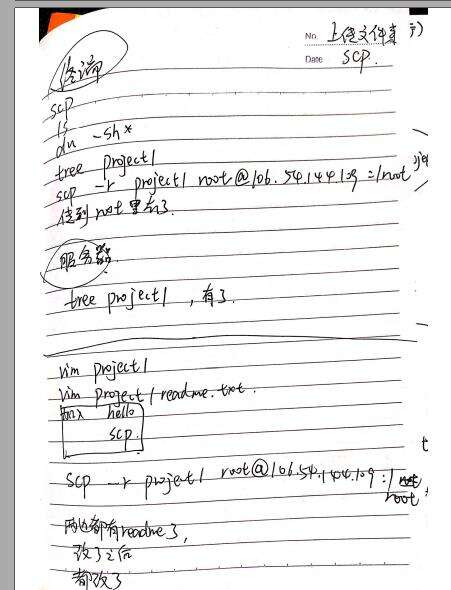 No. 上传文件
Date scp.
终端
scp
ls
du -sh*
tree project1
scp -r project1 root@106.54.144.109:/root
传到root里去了.
服务器.
tree project1 , 有了.
vim project1
vim project1readme.txt.
加入 hello
scp.
scp -r project1 root@106.54.144.109:/
root
两边都有readme了,
改了之后
都改了